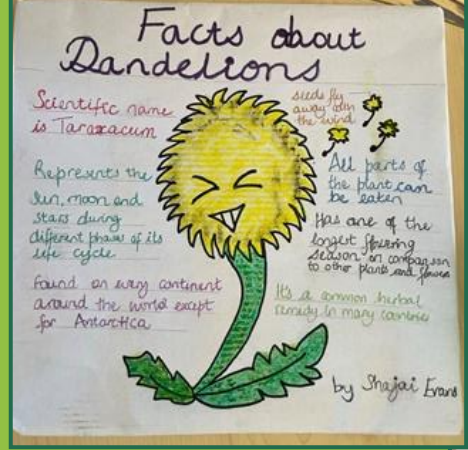 Facts about
Dandelions
Scientific name
is Taraxacum
Represents the
sun, moon and
stars during
different phases of its
life cycle
Found on every continent
around the world except
for Antarctica
seeds fly
away with
the wind
All parts of
the plant can
be eaten
Has one of the
longest flowering
season on comparison
to other plants and flowers
It's a common herbal
remedy in many countries
by Shajai Evans